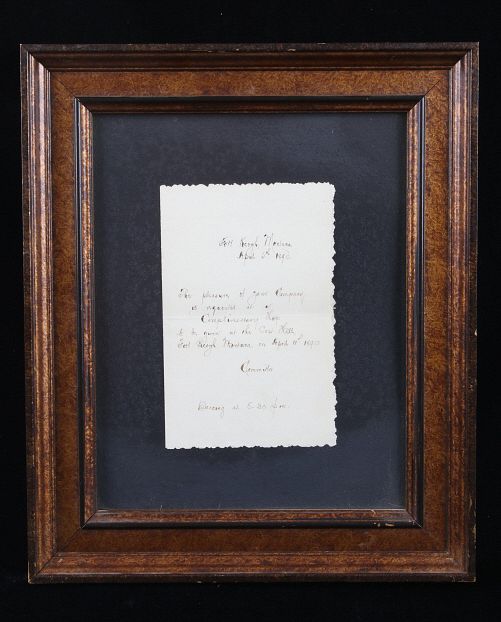 Fort Keogh, Montana
April 6th 189
The pleasure of your Company
is requested at a
Complimentary Hop
to be given at the Post Hall
Fort Keogh, Montana, on April 11th 189
Committee
Dancing at 8.30 p.m.